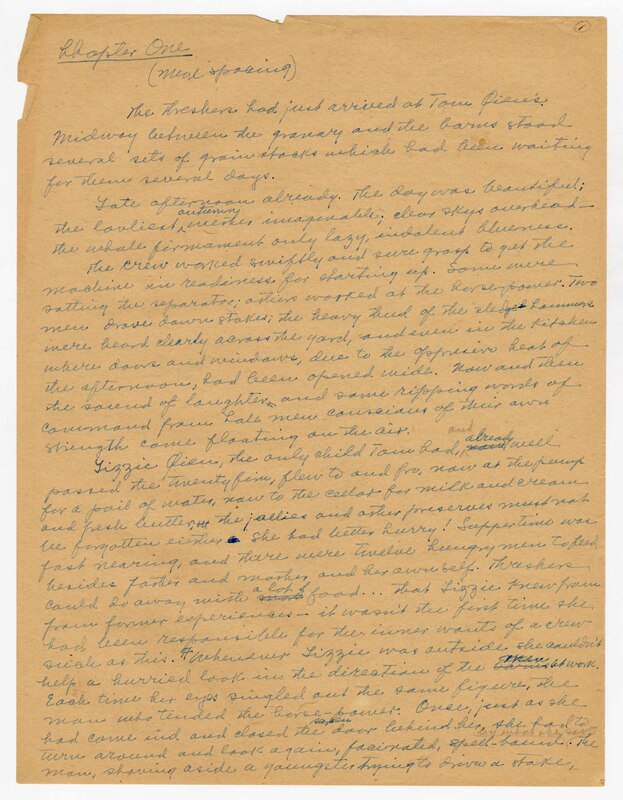 ①
Chapter One
(More spacing)
The threshers had just arrived at Tom Oien's.
Midway between the granary and the barns stood
several sets of grain stacks which had been waiting
for them several days.
Late afternoon already. The day was beautiful;
autumny
the lovliest weather imaginable; clear skys overhead—
the whole firmament only lazy, indolent blueness.
The crew worked swiftly and sure grasp to get the
machine in readiness for starting up. Some were
setting the separator, others worked at the horse-power. Two
men drove down stakes; the heavy thud of the sledge hammers
were heard clearly across the yard, and even in the kitchen
where doors and windows, due to the oppresive heat of
the afternoon, had been opened wide. Now and then
the sound of laughter and some ripping words of
command from hale men conscious of their own
strength came floating on the air.
and already
Lizzie Oien, the only child Tom had, well
passed the twenty five, flew to and fro, now at the pump
for a pail of water, now to the cellar for milk and cream
and fresh butter, the jellies and other preserves must not
be forgotten either. She had better hurry! Suppertime was
fast nearing, and there were twelve hungry men to feed
besides father and mother and her own self. Threshers
a lot of
could do away with food... that Lizzie knew from
from former experiences - it wasn't the first time she
had been responsible for the inner wants of a crew
such as this. ¶ Whenever Lizzie was outside she couldn't
men
help a hurried look in the direction of the barns at work.
Each time her eyes singled out the same figure, the
man who tended the horse-power. Once, just as she
had come in and closed the door behind her, she had to
turn around and look again, facinated, spell-bound. The
man, shoving aside a youngster trying to drive a stake,